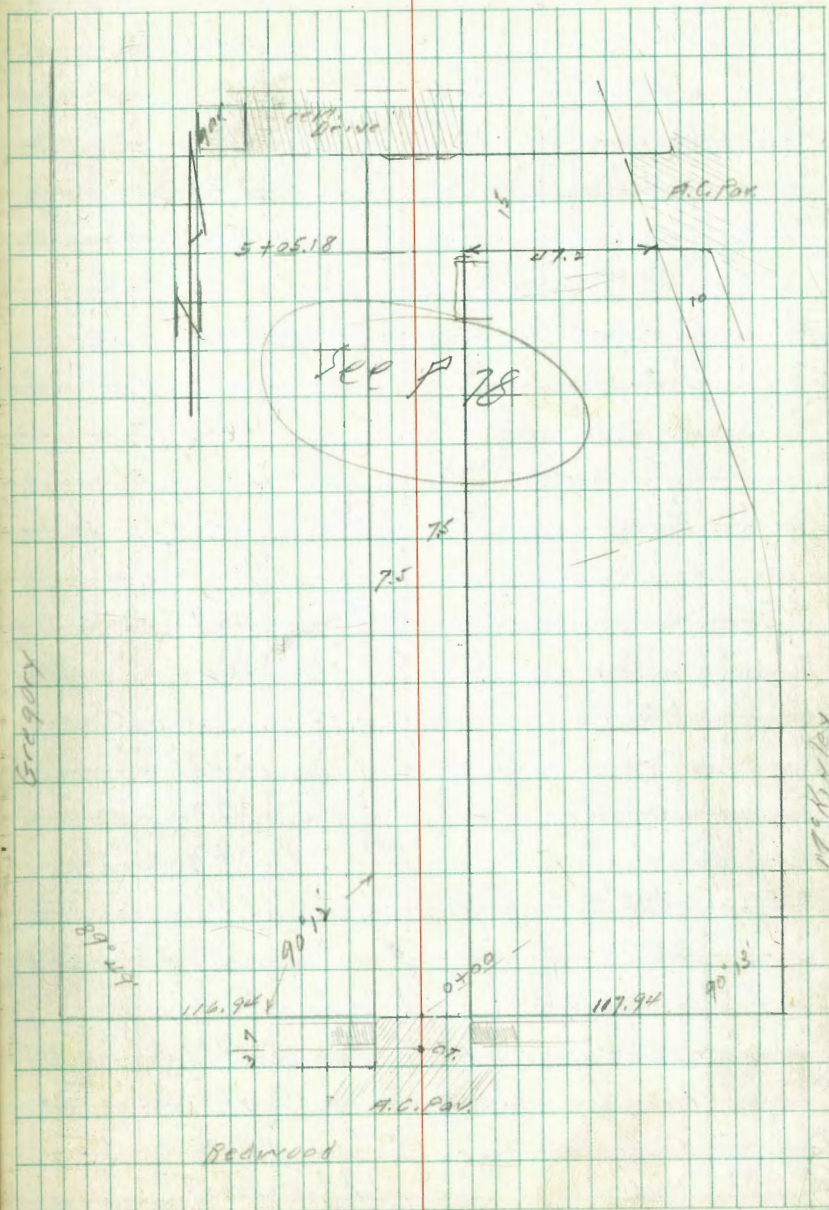 gar
cem.
Drive
A.C. Pav.
15
5+05.18
47.2
10
See P 78
7.5
7.5
Gregory
McKinley
90°12'
0+00
116.94
117.94
90°13'
3.7
A.C. Pav.
Redwood